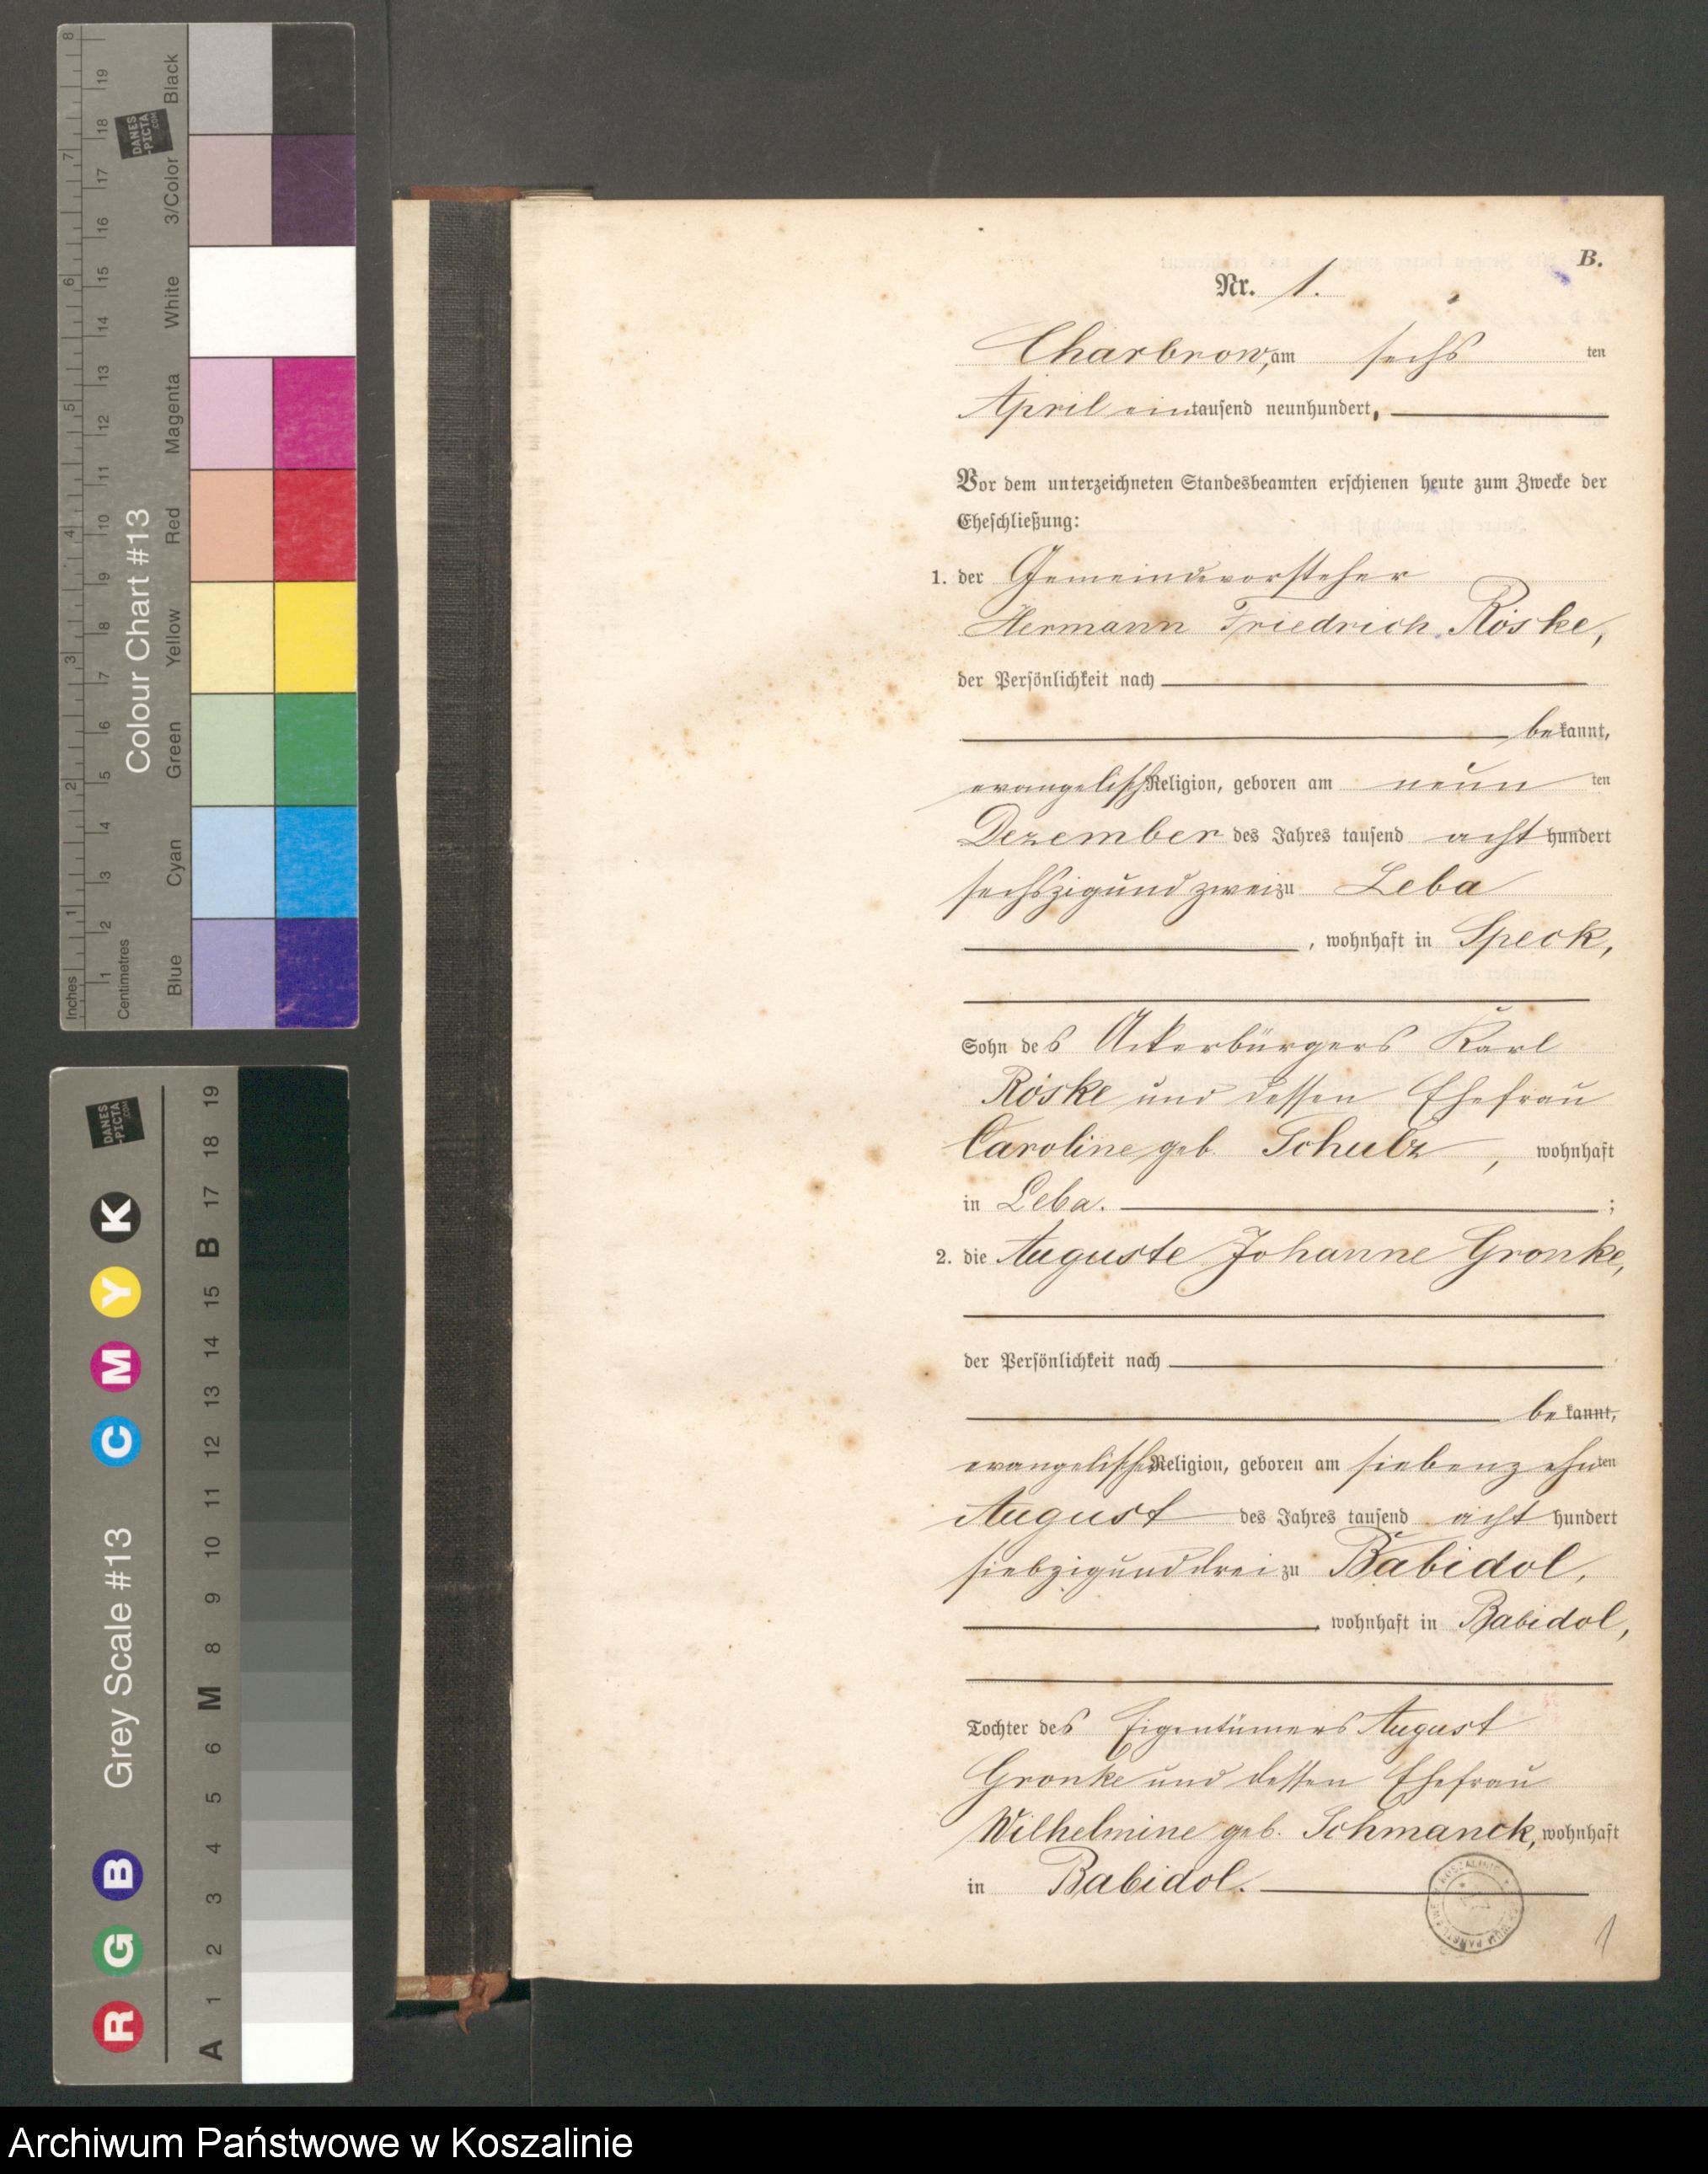 B.
Nr. 1.
Charbrow, am sechsten
April eintausend neunhundert,
Vor dem unterzeichneten Standesbeamten erschienen heute zum Zwecke der
Eheschließung:
1. der Gemeindevorsteher
Hermann Friedrich Röske,
der Persönlichkeit nach
bekannt,
evangelischer Religion, geboren am neunten
Dezember des Jahres tausend acht hundert
sechszigundzwei zu Leba
, wohnhaft in Speck,
Sohn des Ackerbürgers Karl
Röske und dessen Ehefrau
Caroline geb. Schulz, wohnhaft
in Leba. ;
2. die Auguste Johanne Gronke,
der Persönlichkeit nach
bekannt,
evangelischer Religion, geboren am siebenzehnten
August des Jahres tausend acht hundert
siebzigunddrei zu Babidol,
, wohnhaft in Babidol,
Tochter des Eigentümers August
Gronke und dessen Ehefrau
Wilhelmine geb. Schmanck, wohnhaft
in Babidol.
1
Colour Chart #13
Blue Cyan Green Yellow Red Magenta White 3/Color Black
Inches 1 2 3 4 5 6 7 8
Centimetres 1 2 3 4 5 6 7 8 9 10 11 12 13 14 15 16 17 18 19
DANES
-PICTA
.COM
Grey Scale #13
R G B C M Y K
A 1 2 3 4 5 6 M 8 9 10 11 12 13 14 15 B 17 18 19
DANES
-PICTA
.COM
Archiwum Państwowe w Koszalinie